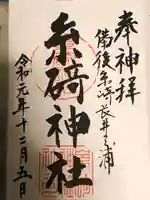 奉神拝
備後糸濟長井之浦
糸碕神社
令和元年十二月五日